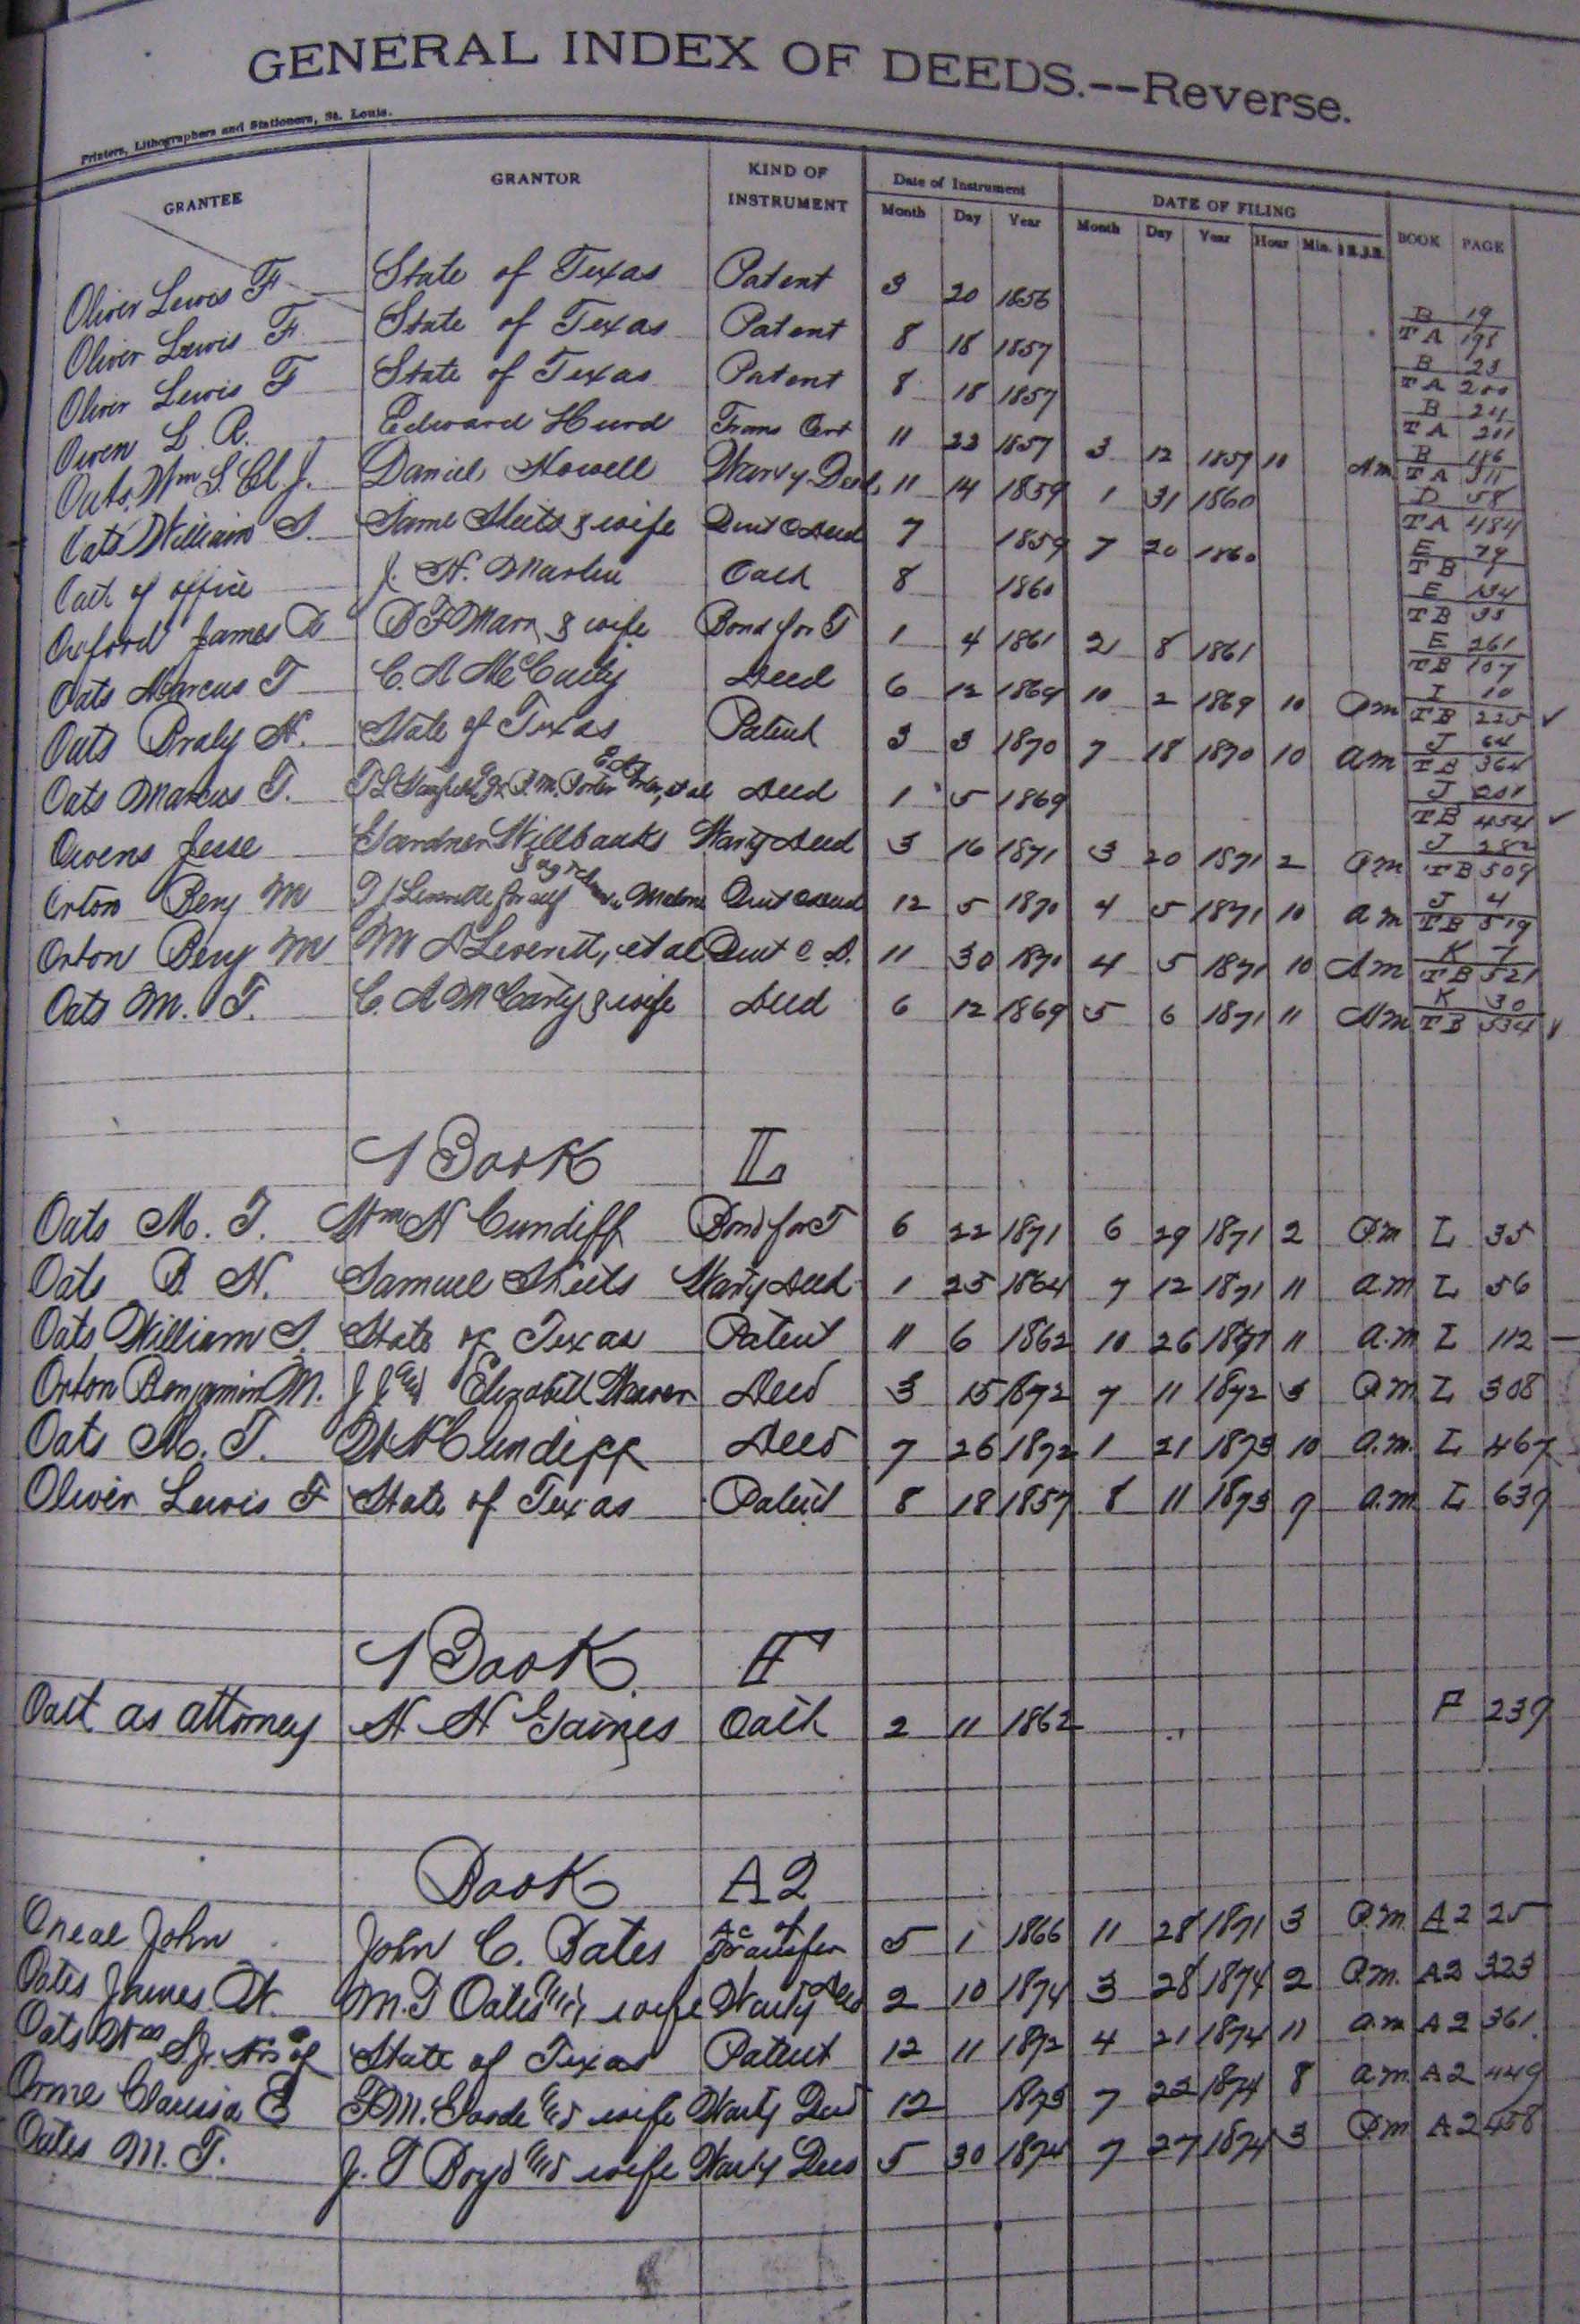 GENERAL INDEX OF DEEDS.--Reverse.
Printers, Lithographers and Stationers, St. Louis.
GRANTEE GRANTOR KIND OF INSTRUMENT Date of Instrument DATE OF FILING BOOK PAGE
Month Day Year Month Day Year Hour Min.
Oliver Lewis F State of Texas Patent 3 20 1856 B 19
TA 198
Oliver Lewis F State of Texas Patent 8 18 1857 B 23
TA 200
Oliver Lewis F State of Texas Patent 8 18 1857 B 24
TA 201
Owen L. R. Edward Hurd Trans Cert 11 23 1857 3 12 1857 10 Am B 186
TA 311
Oats, Wm S. Daniel Howell Wanty Deed 11 14 1859 1 31 1860 D 58
TA 484
Oats William S. Same Sheets & wife Quit C Deed 7 1859 7 20 1860 E 79
TB 9
Oath of office J. H. Martin Oath 8 1860 E 134
TB 35
Oxford James & wife Bond for T 1 4 1861 21 8 1861 E 261
TB 107
Oats Marcus T C. A McCarty Deed 6 12 1869 10 2 1869 10 Pm I 10
TB 225 ✓
Oats Braly H. State of Texas Patent 3 3 1870 7 18 1870 10 am J 64
TB 364
Oats Marcus T. et al Deed 1 5 1869 J
TB 454 ✓
Owens Jesse Gardner Wanty Deed 3 16 1871 3 20 1871 2 Pm J 282
TB 509
Orton Benj M Malone Quit C Deed 12 5 1870 4 5 1871 10 am J 4
TB 519
Orton Benj M M A Leverett, et al Quit C D. 11 30 1870 4 5 1871 10 Am K 7
TB 521
Oats M. T. C. A McCarty & wife Deed 6 12 1869 5 6 1871 11 Am K 30
TB 534 ✓
Book L
Oats M. T. Wm H Cundiff Bond for T 6 22 1871 6 29 1871 2 Pm L 35
Oats B H. Samuel Sheets Wanty Deed 1 25 1864 7 12 1871 11 a.m L 56
Oats William S. State of Texas Patent 11 6 1862 10 26 1871 11 a.m L 112
Orton Benjamin M. J J and Elizabeth Weaver Deed 3 15 1872 7 11 1872 3 P.m L 308
Oats M. T. W H Cundiff Deed 7 26 1872 1 21 1873 10 a.m. L 467
Oliver Lewis F State of Texas Patent 8 18 1857 8 11 1873 9 a.m. L 639
Book F
Oath as attorney H H Gaines Oath 2 11 1862 F 239
Book A2
Oneal John John C. Bates Transfer 5 1 1866 11 28 1871 3 P.m. A2 25
Oates James W. M. T Oates and wife Wanty Deed 2 10 1874 3 28 1874 2 P.m. A2 323
Oats Wm S of State of Texas Patent 12 11 1872 4 21 1874 11 a.m A2 361
Orme Clarissa E F. M. and wife Wanty Deed 12 1873 7 22 1874 8 a.m. A2 449
Oates M. T. J. T Boyd and wife Wanty Deed 5 30 1874 7 27 1874 3 P.m A2 458